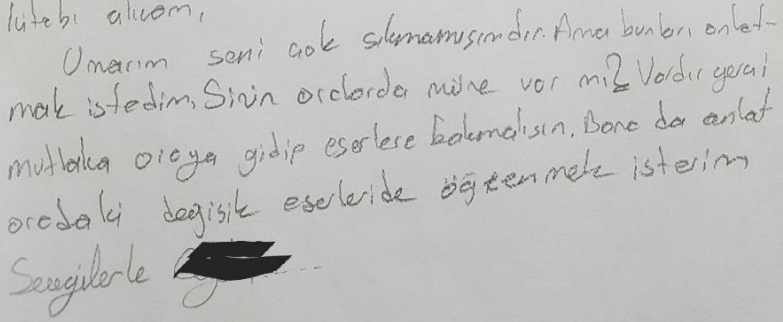 alıcam,
Umarım seni çok sıkmamışımdır. Ama bunları anlat-
mak istedim. Sizin orclarda müze var mı? Vardır gerai
mutlaka oraya gidip eserlere bakmalısın. Bana da anlat
oradaki değişik eserleride öğrenmek isterim
Sevgilerle